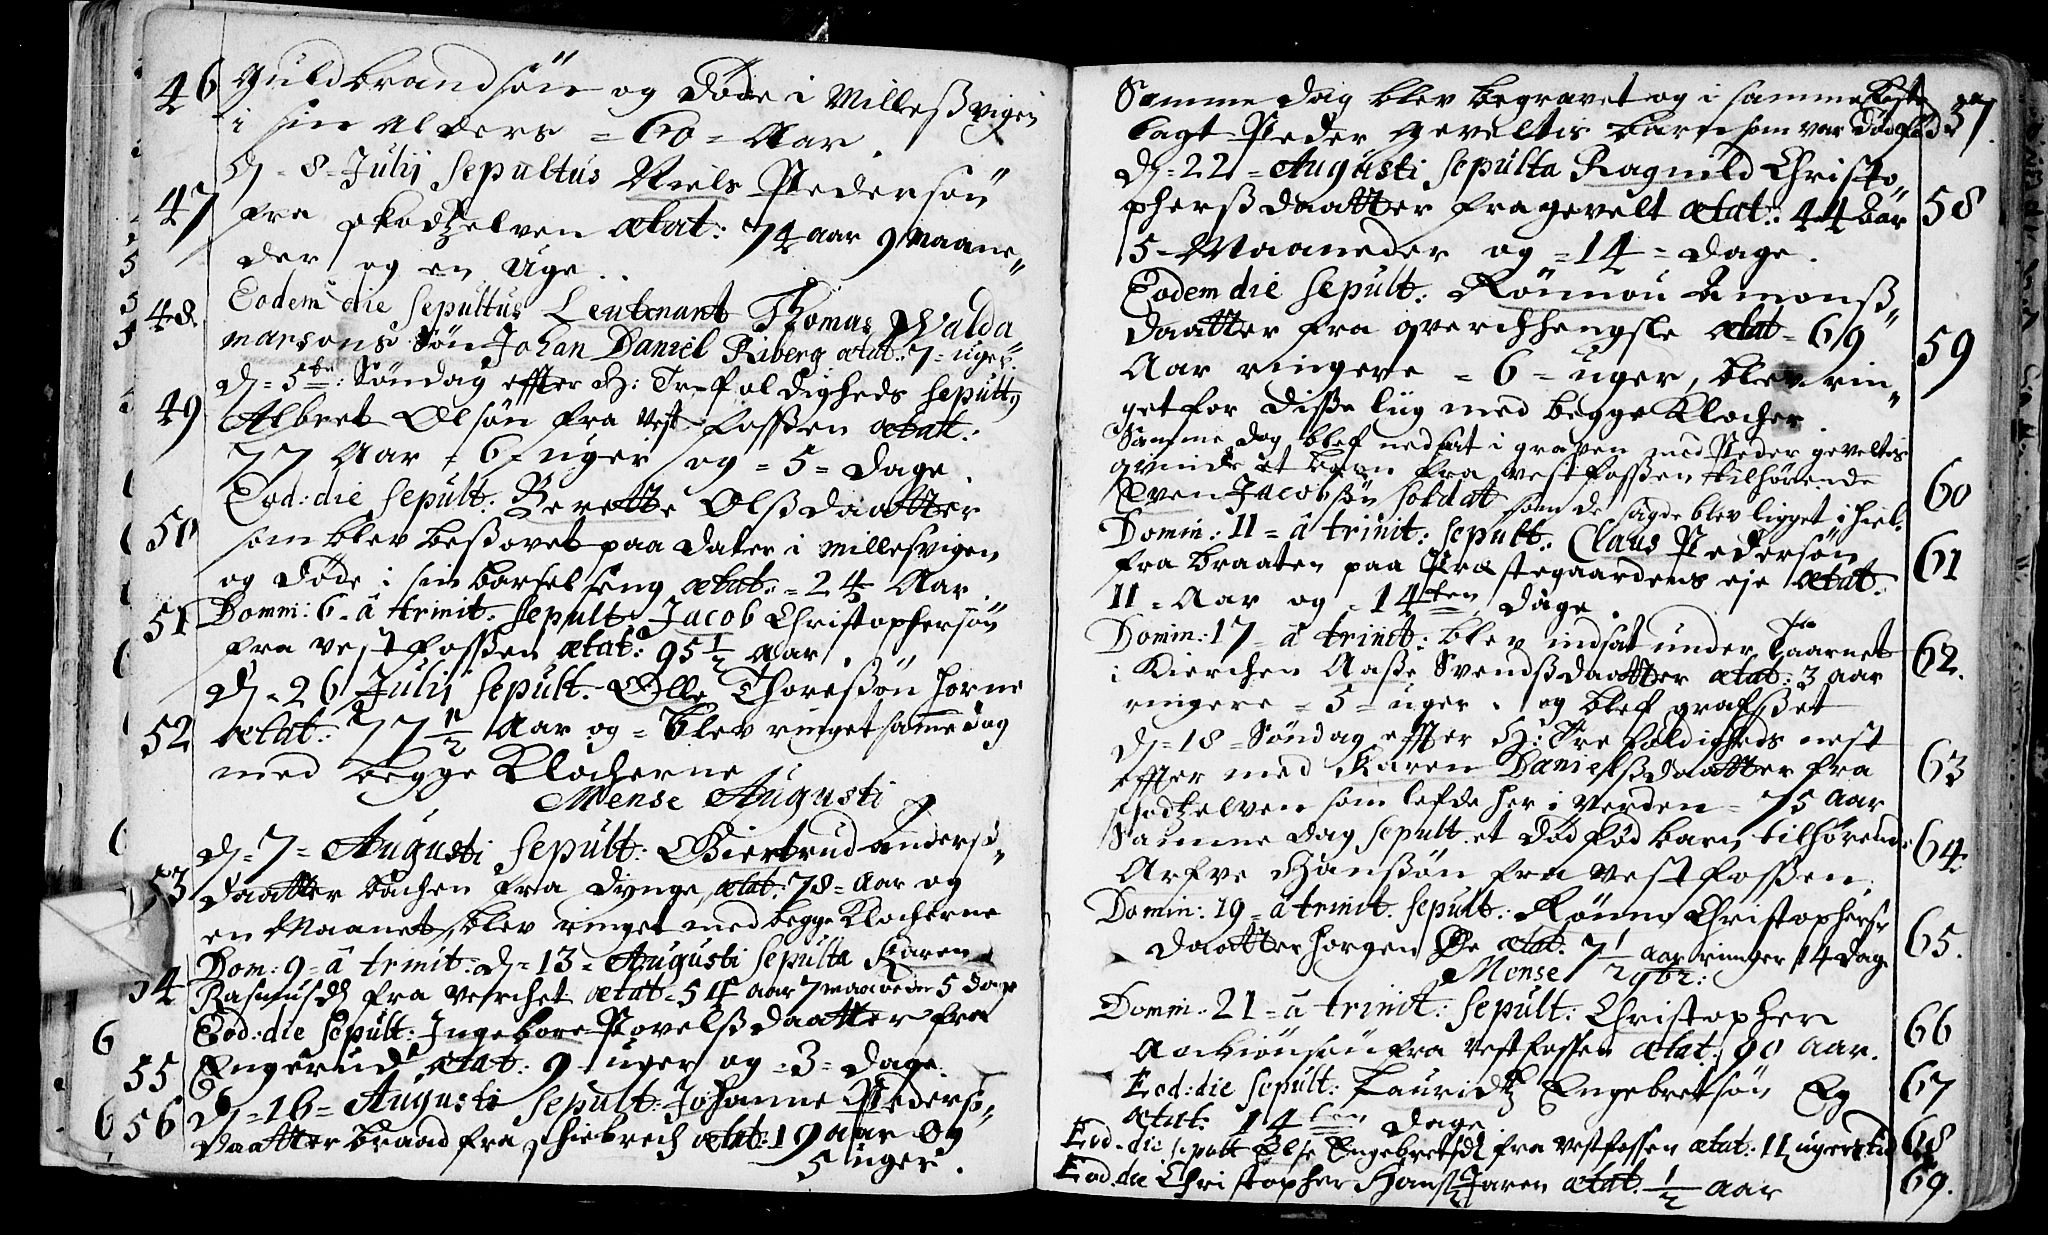 46 Guldbrandsön og døde i Milleßvigen
i sin Alders = 60 = Aar.
47 D. 8 = Julij Sepultus Niels Pedersön
fra skodzelven ætat: 74 aar 9 Maane„
der og en Uge..
48 Eodem die Sepultus Leutenant Thomas Walda„
marsons Sön Johan Daniel Riberg ætat: 7 = uger.
49 D. 5te: Söndag effter H: Trefoldigheds Sepult9
Albret Olsön fra Vestfossen ætat:
77 Aar = 6 = uger og = 5 = dage.
50 Eod: die Sepult: Berette Olßdaatter
som blev besovet paa dater i millesvigen
og døde i sin barsel seng ætat: = 24 Aar.
51 Domin: 6 = â trinit. Sepult Jacob Christophersön
fra vestfossen ætat: 95 1/2 Aar.
52 D. 26 Julij Sepult. Olle Thoresßön horne
ætat: 77 1/2 Aar og = blev ringet samme dag
med begge Klocherne
Mense Augusti
53 D. 7 = Augusti Sepult: Giertrud Anderß„
daatter bachen fra dynge ætat: 78 = Aar og
en Maanet, blev ringet med begge Klocherne
54 Dom: 9 = â trinit: D. 13 = Augusti Sepulta Karen
Rasmusd fra verchet ætat = 51 aar 7 maaneder 5 dage
55 Eod: die Sepult: Ingebore Povelßdaatter fra
Engerud ætat: 9 uger og = 3 = dage.
56 D. 16 = Augusti Sepult: Johanne Pederß„
daatter braad fra schiebrech ætat: 19 aar og
5 uger.
Samme dag blev begravet og i samme Kiste 57.
lagt Peder Geveltis barn som var dødfød
D. 22 = Augusti Sepulta Ragnild Christo„
pherßdaatter fra gevelt ætat: 44 aar 58
5 Maaneder og = 14 = dage.
Eodem die Sepult: Rönnou Amonß„
daatter fra hengsle ætat = 69 59
Aar ringere = 6 = uger, blev rin„
get for disse liig med begge Klocher
Samme dag blef nedsat i graven med Peder geveltis
qvinde et barn fra vestfossen tilhörende
Even Jacobsön soldat som de sagde blev ligget ihiel. 60
Domin: 11 = â trinit: Sepult: Claus Pedersön
fra braaten paa Præstegaardens eje ætat: 61
11 = Aar og = 14ten dage.
Domin: 17 = â trinit: blev indsat under taarnet
i Kierchen Aaße Svendßdaatter ætat: 3 aar 62.
ringere = 5 = uger. og blef grafsßet
D. 18 = Söndag effter H: Trefoldigheds nest
efter med Karen Danielßdaatter fra 63
skodzelven som lefde her i Verden = 75 Aar
Samme dag Sepult. et død fød barn tilhörende 64
Arfve Hansßön fra vestfossen.
Domin: 19 = â trinit. Sepult: Rönne Christophers„
daatter horgen Øe ætat. 7 1/2 aar ringer 14 dage 65.
Mense 9br:
Domin: 21 = â trinit: Sepult: Christopher
Anbiönsön fra vestfossen ætat: 90 Aar. 66
Eod: die Sepult: Lauridz Engebretsön Eg 67
ætat. 14ten dage
Eod: die sepult Else Engebretsd fra vestfossen ætat: 11 ugers tid 68
Eod: die Christopher Hans Jaren ætat. 1/2 aar 69.